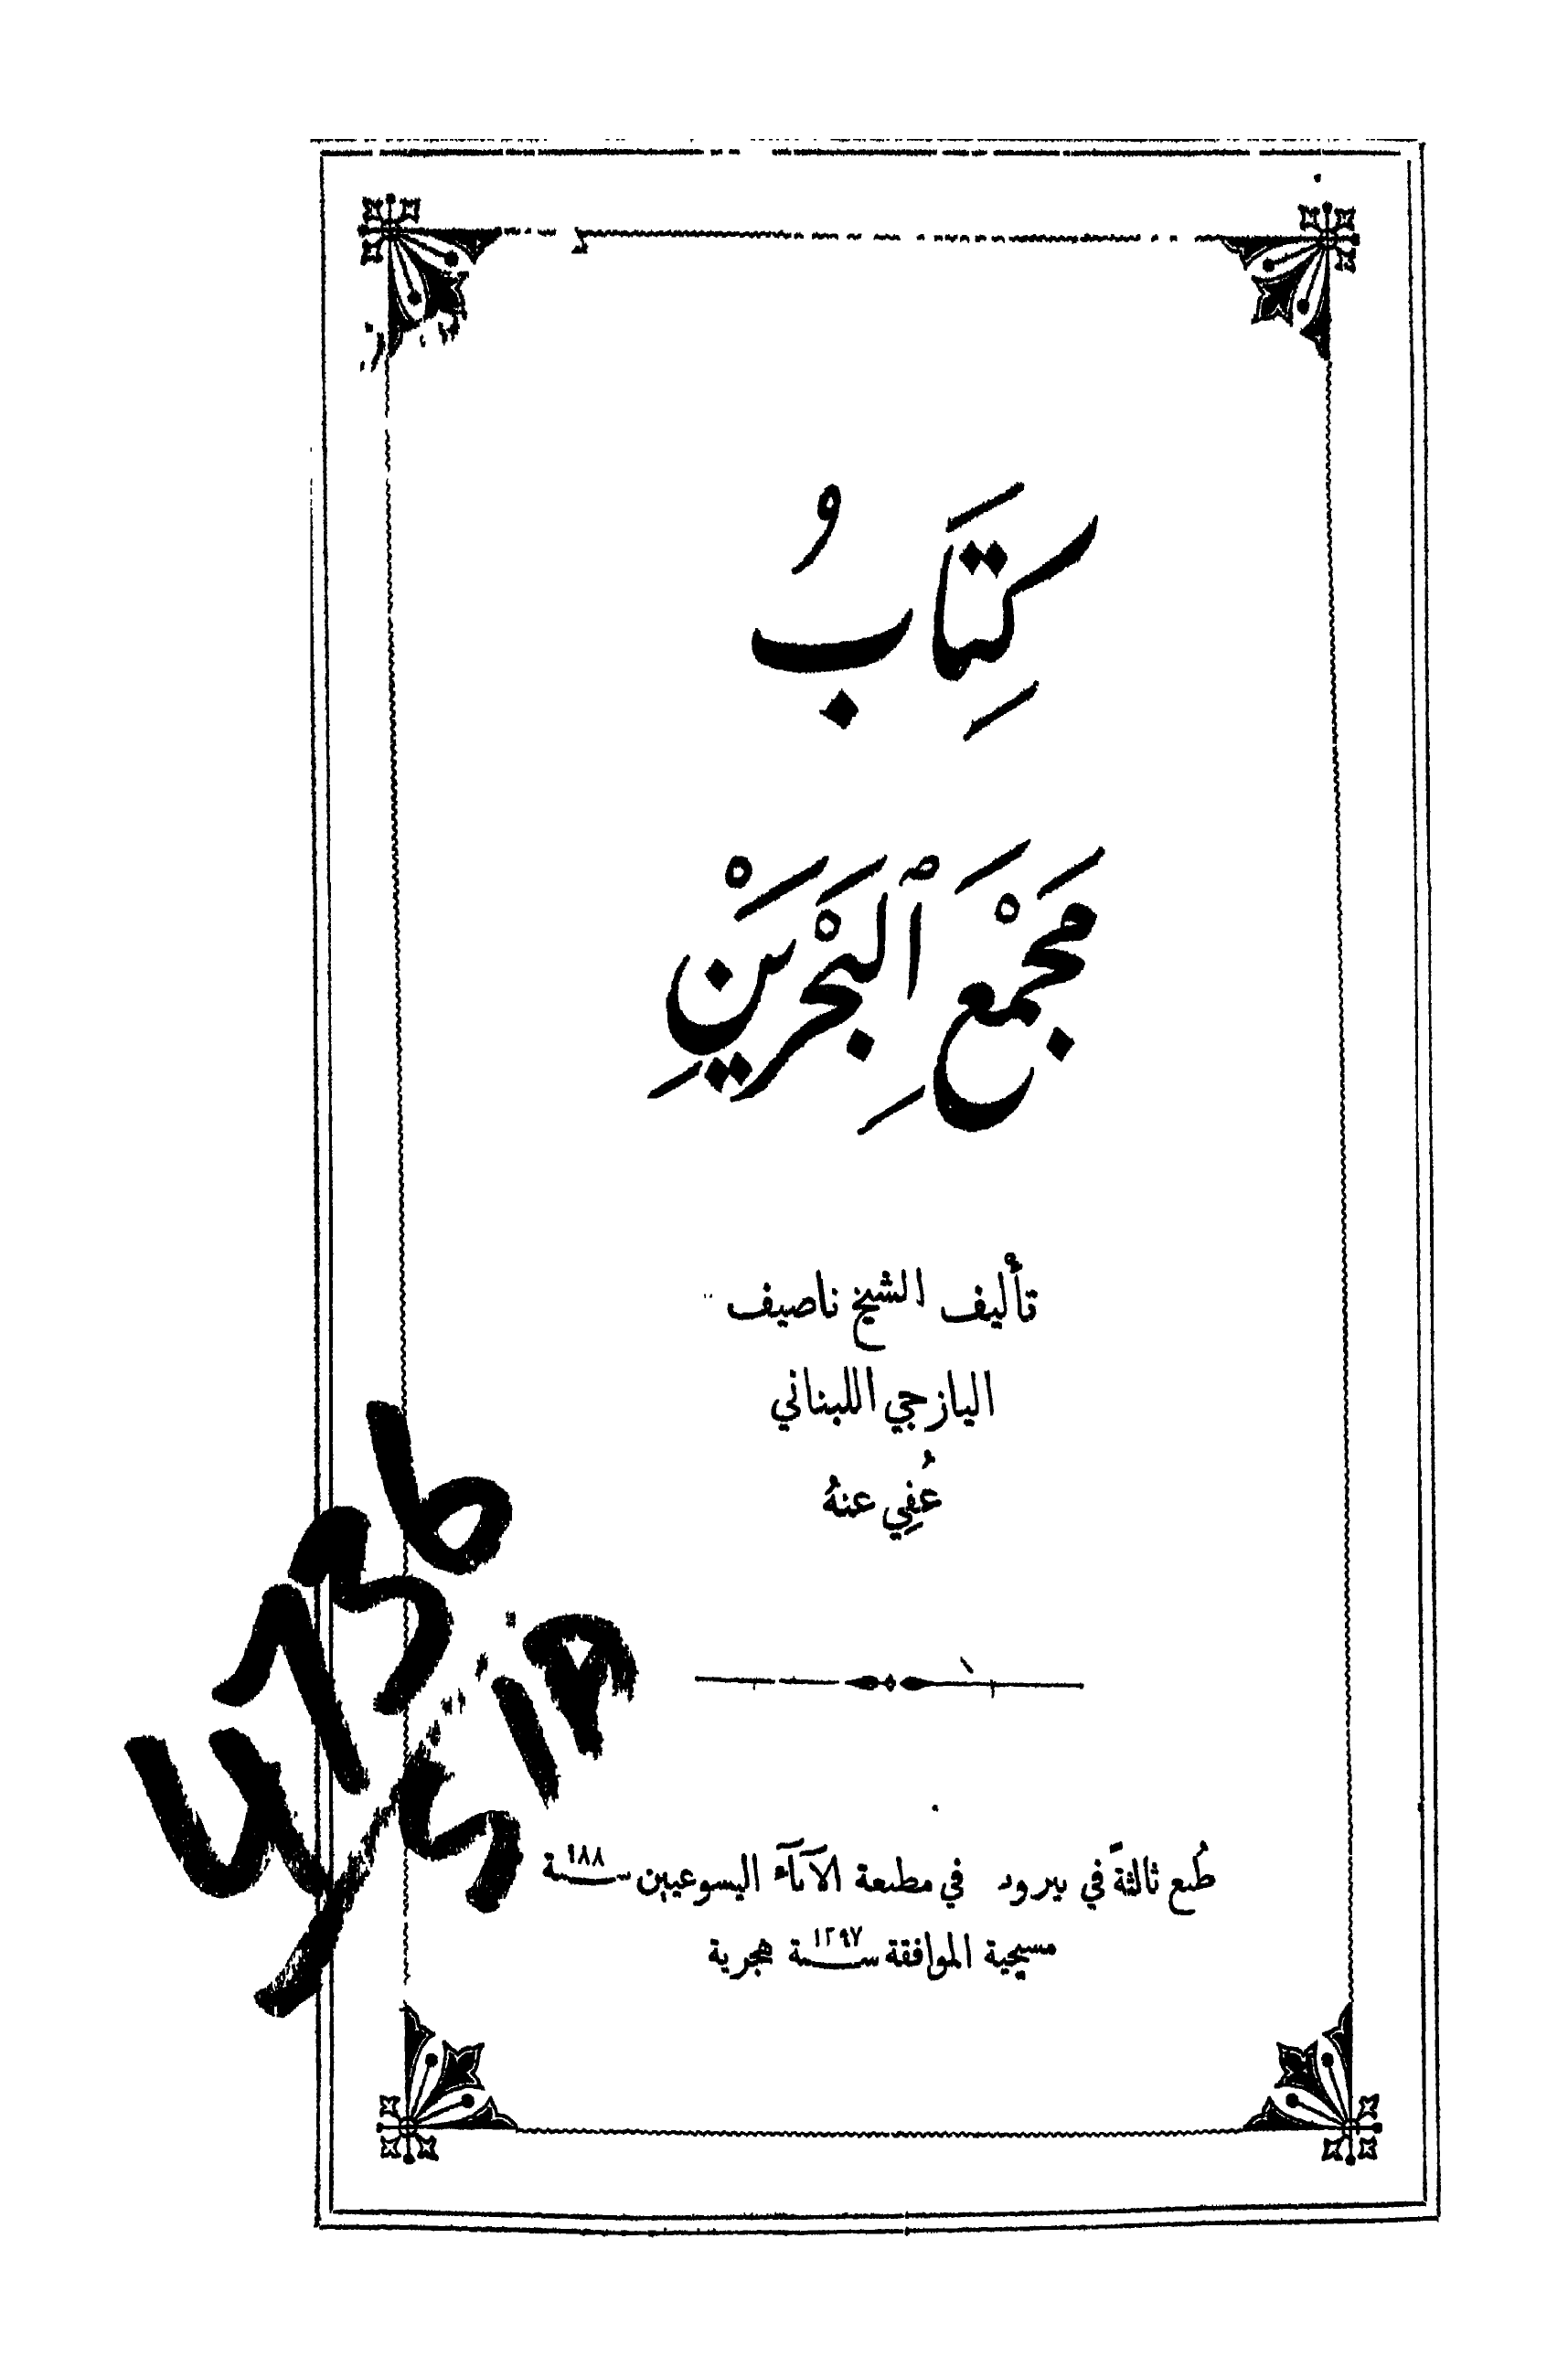 كِتَابُ
مَجْمَعَ ٱلبَحْرَيْنِ
تأليف الشيخ ناصيف
اليازجي اللبناني
عُفِي عنهُ
طُبع ثالثةً في بيروت في مطبعة الآبآء اليسوعيين سنة
مسيحية الموافقة سنة ١٢٩٧ هجرية